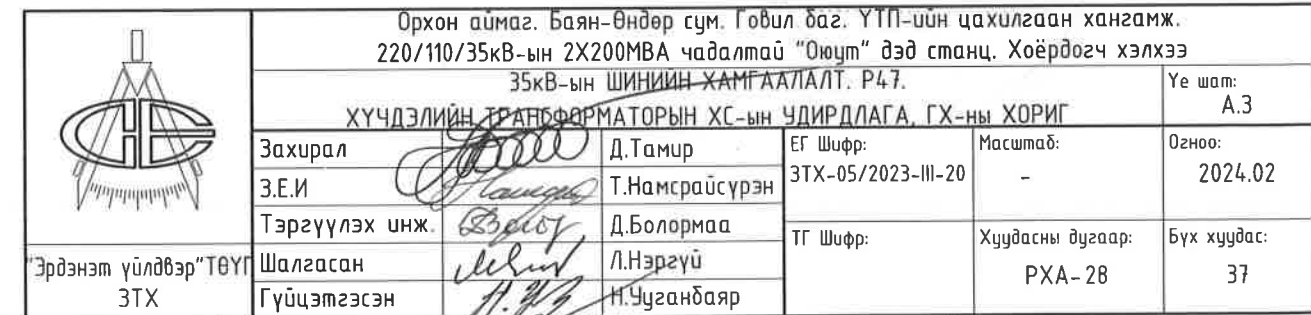 Орхон аймаг. Баян-Өндөр сум. Говил баг. ҮТП-ийн цахилгаан хангамж.
220/110/35кВ-ын 2X200МВА чадалтай "Оюут" дэд станц. Хоёрдогч хэлхээ
35кВ-ын ШИНИЙН ХАМГААЛАЛТ. Р47.
ХҮЧДЭЛИЙН ТРАНСФОРМАТОРЫН ХС-ын УДИРДЛАГА, ГХ-ны ХОРИГ
Үе шат:
А.3
Захирал
Д.Тамир
З.Е.И
Т.Намсрайсүрэн
Тэргүүлэх инж.
Д.Болормаа
Шалгасан
Л.Нэргүй
Гүйцэтгэсэн
Н.Ууганбаяр
ЕГ Шифр:
ЗТХ-05/2023-III-20
Масштаб:
-
Огноо:
2024.02
ТГ Шифр:
Хуудасны дугаар:
РХА-28
Бүх хуудас:
37
"Эрдэнэт үйлдвэр"ТӨҮГ
ЗТХ